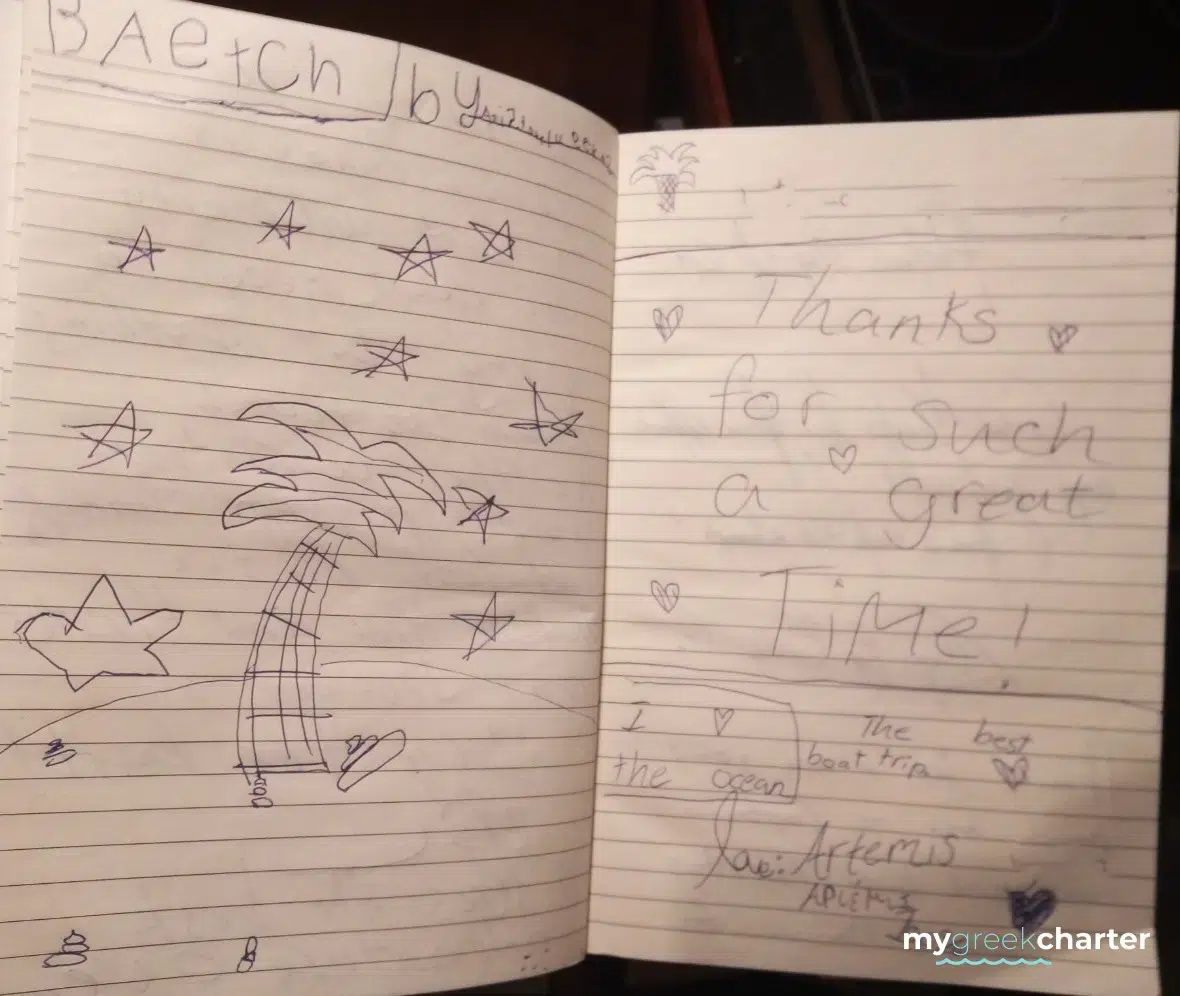 BAetch by
Thanks
for such
a great
TiMe!
I ♡
the ocean
The best
boat trip
Artemis
mygreekcharter